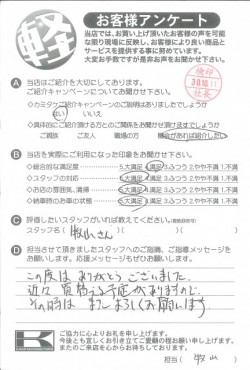 軽
お客様アンケート
当店では、お買い上げ頂いたお客様の声を可能
な限り現場に反映し、お客様により良い商品と
サービスを提供する事に努めています。
大変お手数ですが是非お声をお聞かせ下さい。
検印
社長
A 当店はご紹介を大切にしております。
ご紹介キャンペーンについてお聞かせ下さい。
◇カミタケご紹介キャンペーンのご説明はありましたでしょうか
はい いいえ
ご親戚 ご友人 職場の方 機会があれば紹介したい
B 当店を実際にご利用になった印象をお聞かせ下さい。
◇総合的な満足度 5.大満足 4.満足 3.ふつう 2.やや不満 1.不満
◇スタッフの対応 5.大満足 4.満足 3.ふつう 2.やや不満 1.不満
◇お店の雰囲気、清掃 5.大満足 4.満足 3.ふつう 2.やや不満 1.不満
◇納車時のお車の状態 5.大満足 4.満足 3.ふつう 2.やや不満 1.不満
C 評価したいスタッフがいれば教えてください。
スタッフ名( 牧山さん )
D 担当させて頂きましたスタッフへのご指摘、ご指導メッセージを
お願いします。応援メッセージもぜひお願いします。
この度は ありがとう ございました。
近々 買替える予定が ありますので、
その時は また よろしくお願いします
K
ご協力に心よりお礼を申し上げます。
今後とも宜しくお引き立てご愛顧の程お願い申し上げます。
またのご来店を心からお待ちしております。
担当( 牧山 )